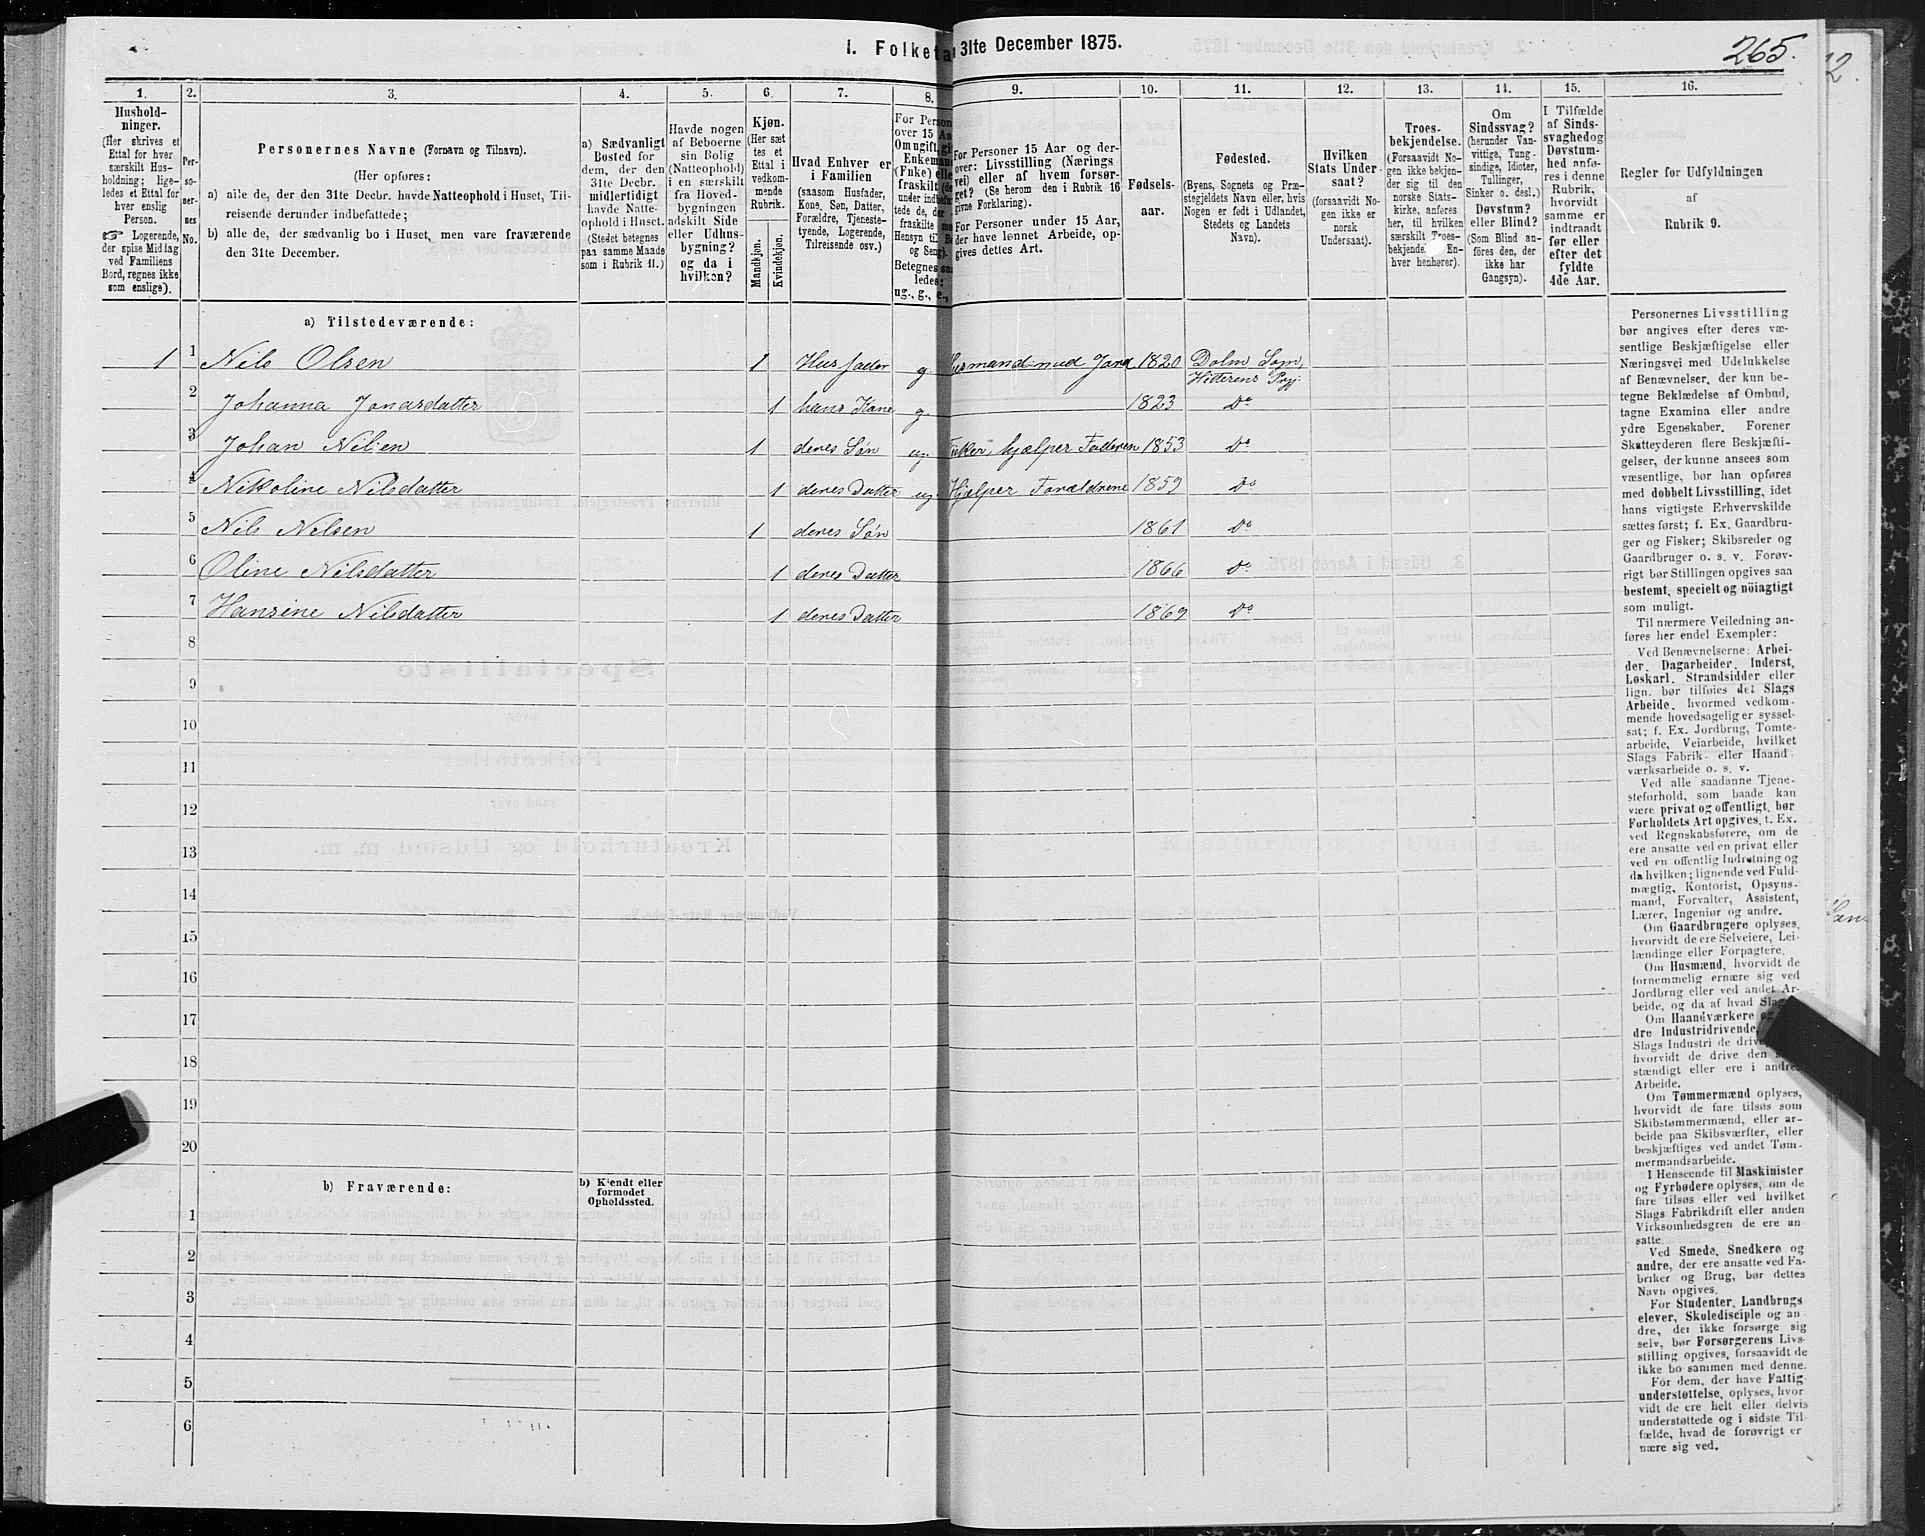 1. Folketa 31te December 1875.
265.
1. 2. 3. 4. 5. 6. 7. 8. 9. 10. 11. 12. 13. 14. 15. 16.
Hushold-
ninger.
(Her skrives et
Ettal for hver
særskilt Hus-
holdning; lige-
ledes et Ettal for
hver enslig
Person.
☞ Logerende,
der spise Middag
ved Familiens
Bord, regnes ikke
som enslige).
Per-
so-
ner-
nes
No.
Personernes Navne (Fornavn og Tilnavn).
(Her opføres:
a) alle de, der den 31te Decbr. havde Natteophold i Huset, Til-
reisende derunder indbefattede;
b) alle de, der sædvanlig bo i Huset, men vare fraværende
den 31te December.
a) Sædvanligt
Bosted for
dem, der den
31te Decbr.
midlertidigt
havde Natte-
ophold i Huset.
(Stedet betegnes
paa samme Maade
som i Rubrik 11.)
Havde nogen
af Beboerne
sin Bolig
(Natteophold)
i en særskilt
fra Hoved-
bygningen
adskilt Side
eller Udhus-
bygning?
og da i
hvilken?
Kjøn.
(Her sæt
tes et
Ettal i
vedkom-
mende
Rubrik.
Mandkjøn.
Kvindekjøn.
Hvad Enhver er
i Familien
(saasom Husfader,
Kone, Søn, Datter,
Forældre, Tjeneste-
tyende, Logerende,
Tilreisende osv.)
For Person
over 15 Aa
Om ugift, gi
Enkeman
(Fnke) elle
fraskilt (de
under indbefa
tede de, der
fraskilte
Hensyn til B
og Seng).
Betegnes saa
ledes:
ug., g., e.,
For Personer 15 Aar og der-
over: Livsstilling (Nærings
vei) eller af hvem forsør-
get? (Se herom den i Rubrik 16
givne Forklaring).
For Personer under 15 Aar,
der have lønnet Arbeide, op-
gives dettes Art.
Fødsels-
aar.
Fødested.
(Byens, Sognets og Præ-
stegjeldets Navn eller, hvis
Nogen er født i Udlandet,
Stedets og Landets
Navn).
Hvilken
Stats Under
saat?
(forsaavidt No-
gen ikke er
norsk
Undersaat).
Troes-
bekjendelse.
(Forsaavidt No-
gen ikke bekjen-
der sig til den
norske Stats-
kirke, anføres
her, til hvilken
særskilt Troes-
bekjendel. En-
hver henhører).
Om
Sindssvag?
(herunder Van-
vittige, Tung-
sindige, Idioter,
Tullinger,
Sinker o. desl.)
Døvstum?
eller Blind?
(Som Blind an-
føres den, der
ikke har
Gangsyn).
I Tilfælde
af Sinds-
svaghed og
Døvstum-
hed anfø-
res i denne
Rubrik,
hvorvidt
samme er
indtraadt
før eller
efter det
fyldte
4de Aar.
Regler for Udfyldningen
af
Rubrik 9.
a) Tilstedeværende:
1 1 Nils Olsen 1 Husfader g. Husmand med Jord 1820 Dolm Sogn,
Hitterens Prgj.
2 Johanna Jonasdatter 1 hans Kone g. 1823 Do
3 Johan Nilsen 1 deres Søn ug. Fisker, hjælper Faderen 1853 Do
4 Nikoline Nilsdatter 1 deres Datter ug. Hjælper Forældrene 1859 Do
5 Nils Nilsen 1 deres Søn 1861 Do
6 Oline Nilsdatter 1 deres Datter 1866 Do
7 Hansine Nilsdatter 1 deres Datter 1869 Do
8
9
10
11
12
13
14
15
16
17
18
19
20
b) Fraværende:
b) Kjendt eller
formodet
Opholdssted.
1
2
3
4
5
6
Personernes Livsstilling
bør angives efter deres væ-
sentlige Beskjæftigelse eller
Næringsvei med Udelukkelse
af Benævnelser, der kun be-
tegne Beklædelse af Ombud,
tagne Examina eller andre
ydre Egenskaber. Forener
Skatteyderen flere Beskjæfti-
gelser, der kunne ansees som
væsentlige, bør han opføres
med dobbelt Livsstilling, idet
hans vigtigste Erhvervskilde
sættes først; f. Ex. Gaardbru-
ger og Fisker; Skibsreder og
Gaardbruger o. s. v. Forøv-
rigt bør Stillingen opgives saa
bestemt, specielt og nöiagtigt
som muligt.
Til nærmere Veiledning an-
føres her endel Exempler:
Ved Benævnelserne: Arbei-
der, Dagarbeider, Inderst,
Løskarl, Strandsidder eller
lign. bør tilføies det Slags
Arbeide, hvormed vedkom-
mende hovedsagelig er syssel-
sat; f. Ex. Jordbrug, Tomte-
arbeide, Veiarbeide, hvilket
Slags Fabrik- eller Haand-
værksarbeide o. s. v.
Ved alle saadanne Tjene-
steforhold, som baade kan
være privat og offentligt, bør
Forholdets Art opgives, t. Ex.
ved Regnskabsførere, om de
ere ansatte ved en privat eller
ved en offentlig Indretning og
da hvilken; lignende ved Fuld-
mægtig, Kontorist, Opsyns-
mand, Forvalter, Assistent,
Lærer, Ingeniør og andre.
Om Gaardbrugere oplyses,
hvorvidt de ere Selveiere, Lei-
lændinge eller Forpagtere.
Om Husmænd, hvorvidt de
fornemmelig ernære sig ved
Jordbrug eller ved andet Ar-
beide, og da af hvad Slag
Om Haandværkere og
dre Industridrivende,
Slags Industri de drive
hvorvidt de drive den
stændigt eller ere i andre
Arbeide.
Om Tømmermænd oplyses,
hvorvidt de fare tilsøs som
Skibstømmermænd, eller ar-
beide paa Skibsværfter, eller
beskjæftiges ved andet Tøm-
mermandsarbeide.
I Henseende til Maskinister
og Fyrbødere oplyses, om de
fare tilsøs eller ved hvilket
Slags Fabrikdrift eller anden
Virksomhedsgren de ere an-
satte.
Ved Smede, Snedkere og
andre, der ere ansatte ved Fa-
briker og Brug, bør dettes
Navn opgives.
For Studenter, Landbrugs
elever, Skoledisciple og an-
dre, der ikke forsørge sig
selv, bør Forsørgerens Livs-
stilling opgives, forsaavidt de
ikke bo sammen med denne.
For dem, der have Fattig-
understøttelse, oplyses, hvor
vidt de ere helt eller delvis
understøttede og i sidste Til-
fælde, hvad de forøvrigt er
nære sig ved.